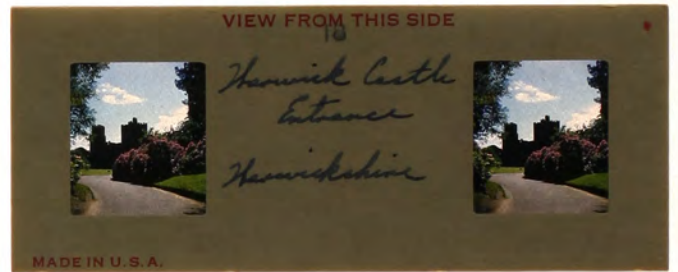 VIEW FROM THIS SIDE
10
Warwick Castle
Entrance
Warwickshire
MADE IN U.S.A.